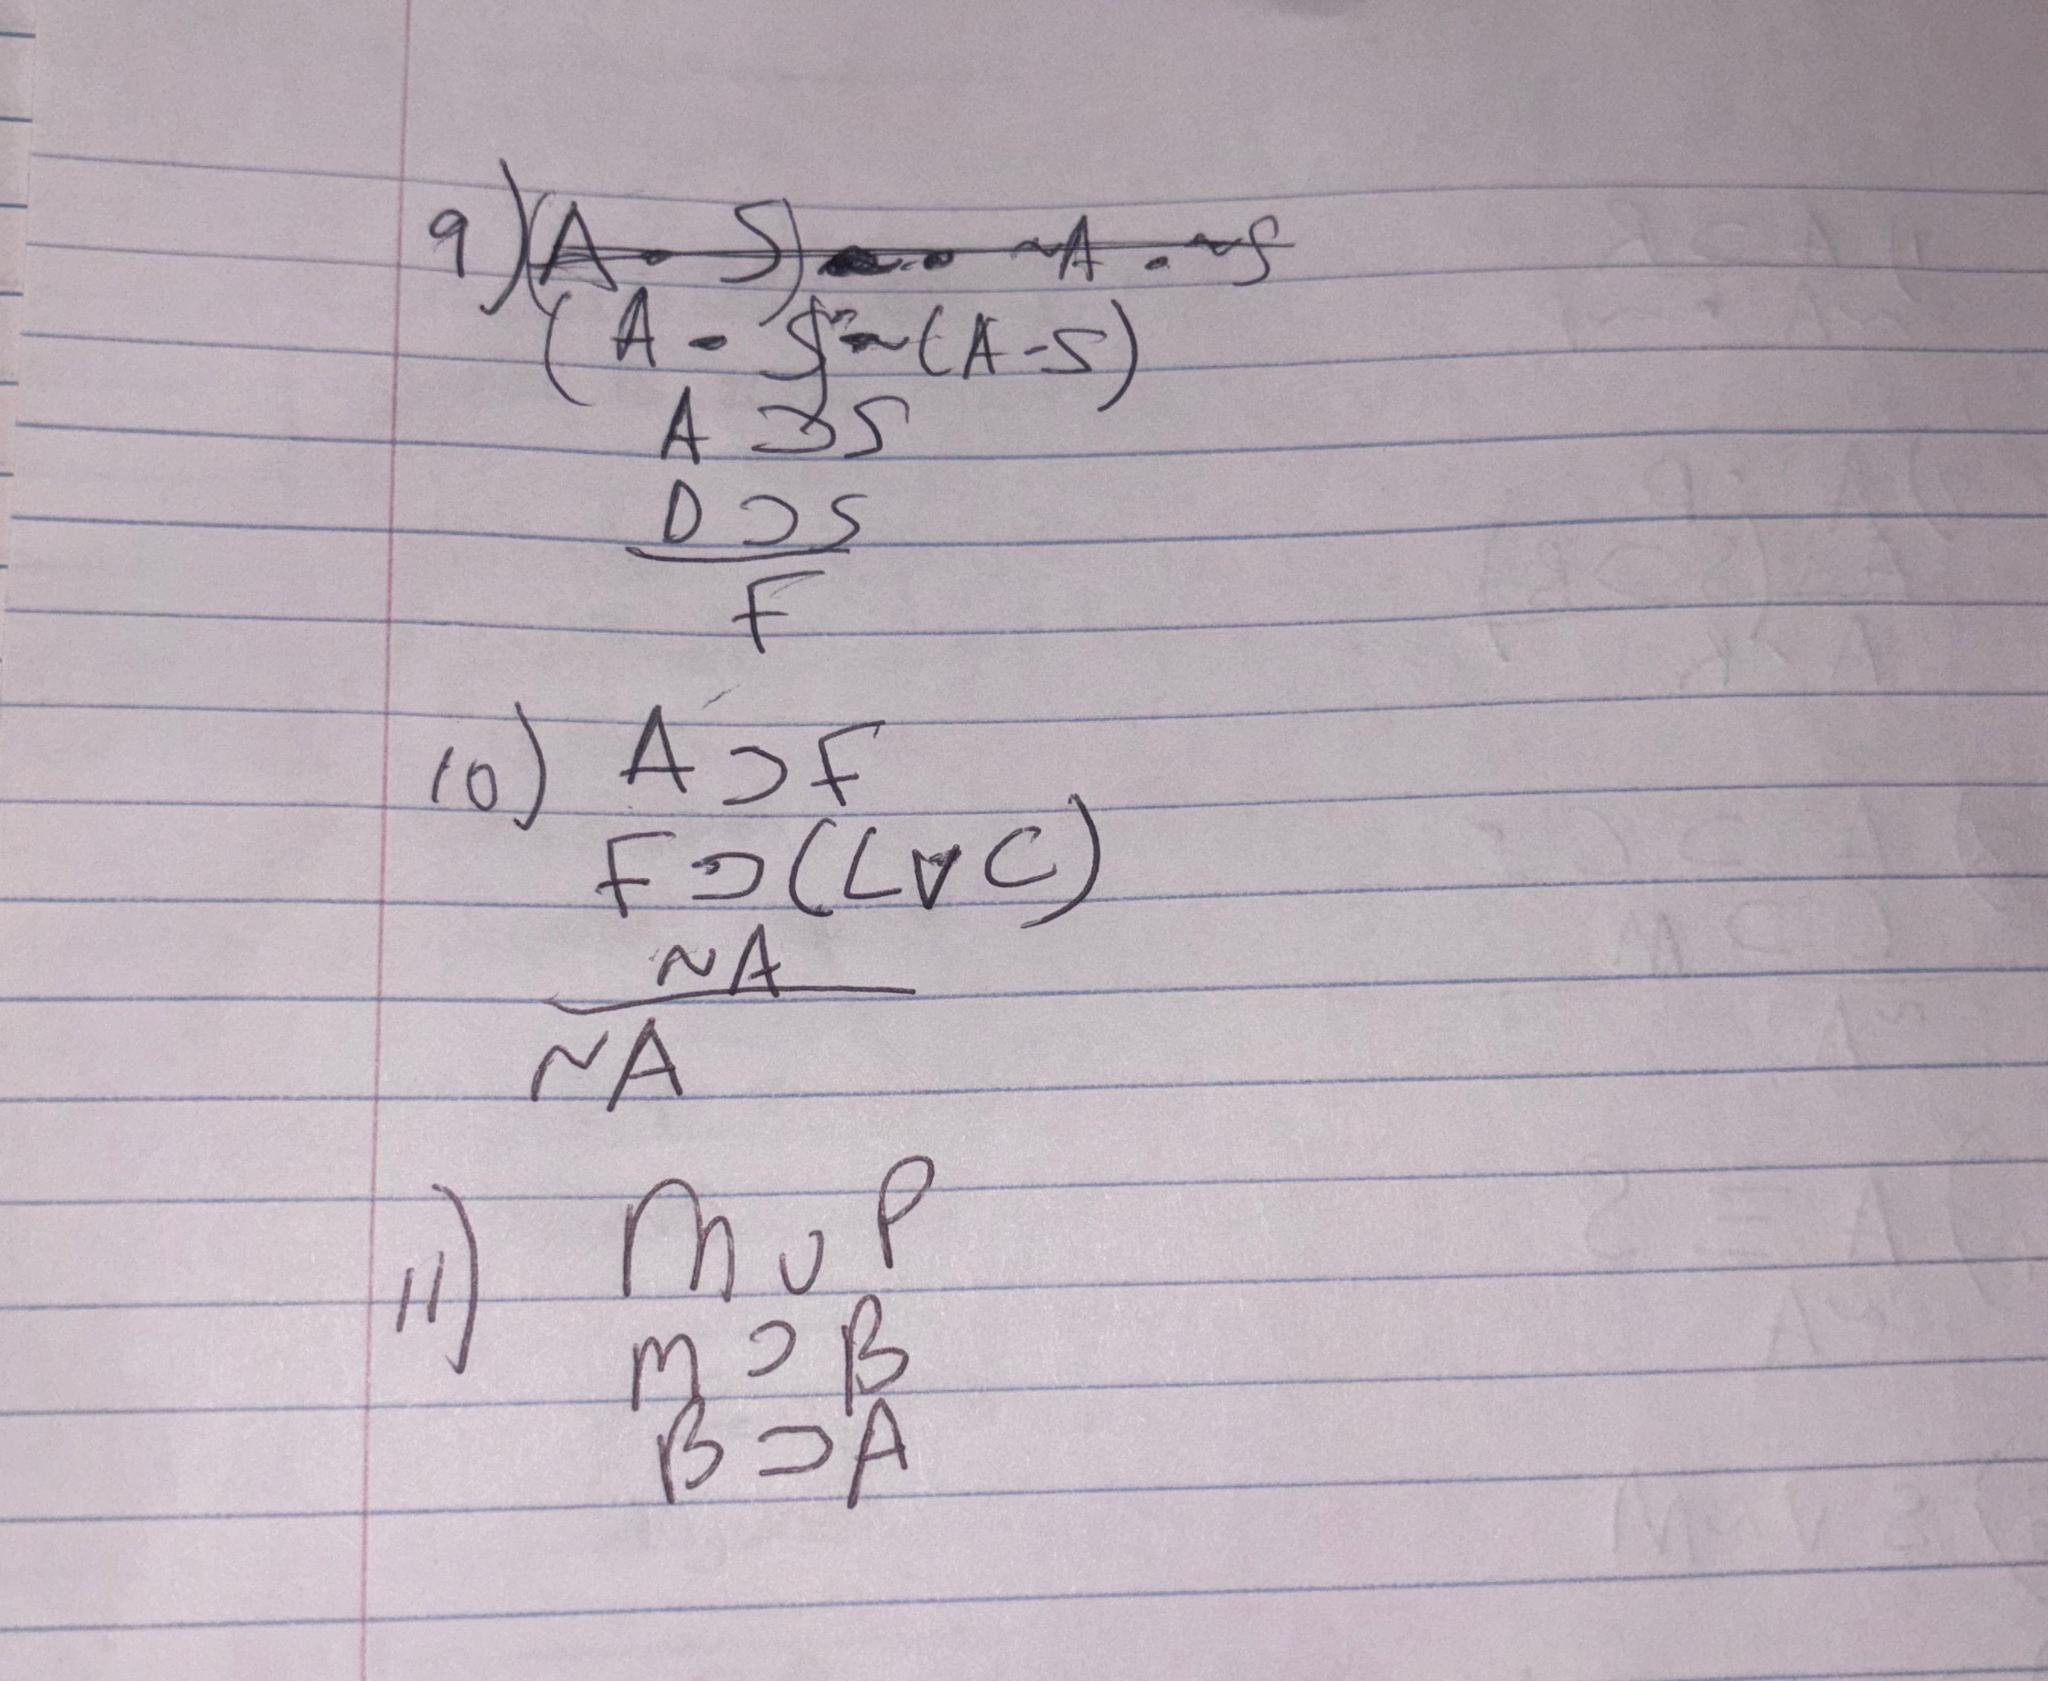 9) (A • S) • ~A • ~S
(A • S ~ (A - S)
A ⊃ S
D ⊃ S
F
10) A ⊃ F
F ⊃ (L v C)
~A
~A
11) M v P
M ⊃ B
B ⊃ A